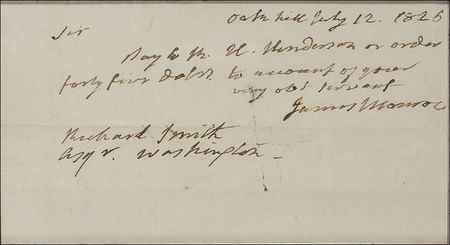 Oak hill July 12. 1826
Sir
Pay to Mr. H. Henderson or order
forty five dolrs. to account of your
very obt servant
James Monroe
Richard Smith
Esqr. Washington